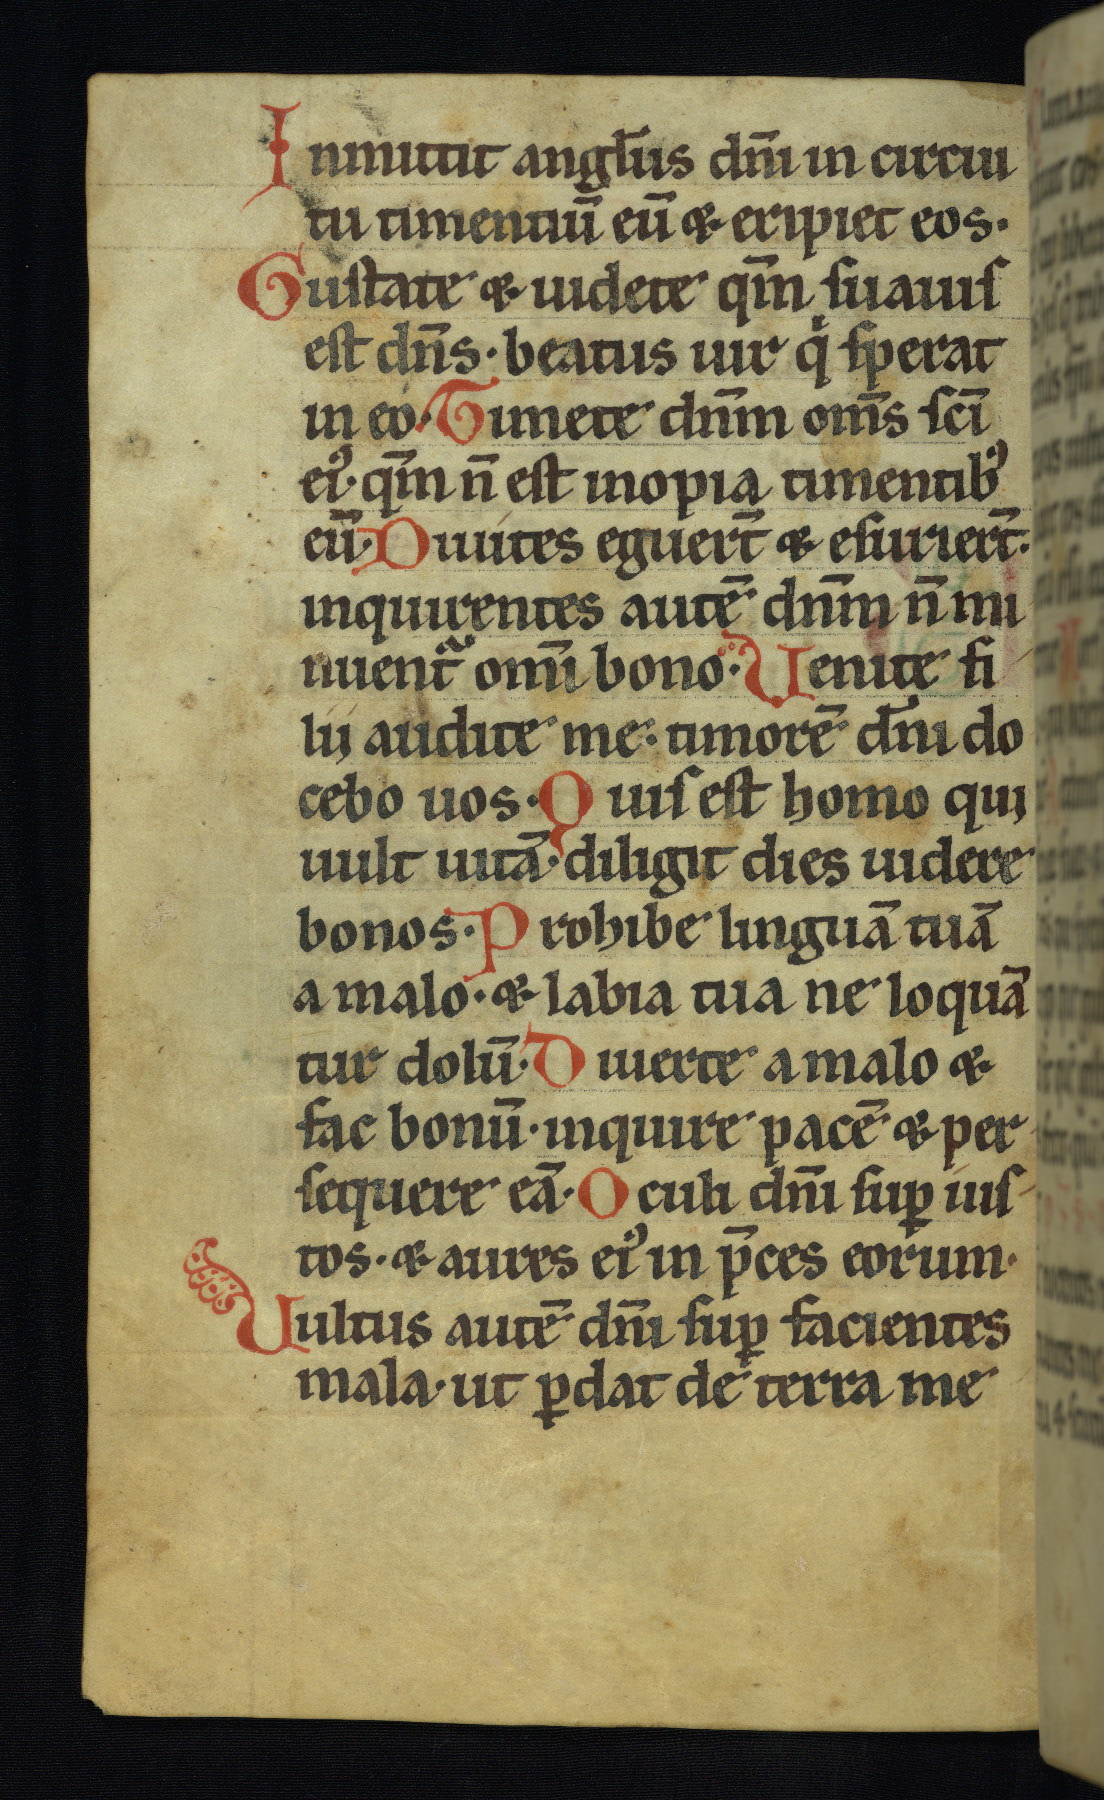 Inmittit angl̅us dn̅i in circui
tu timentiu̅ eu̅ & eripiet eos·
Gustate & uidete qm̅ suauis
est dn̅s· beatus uir qͥ sperat
in eo· Timete dn̅m om̅s sc̅i
eiꝰ· qm̅ n̅ est inopia timentibꝰ
eu̅· Diuites eguer̅t & esurier̅t·
inquirentes aute̅ dn̅m n̅ mi
nuent᷑ om̅i bono· Uenite fi
lii audite me· timore̅ dn̅i do
cebo uos· Quis est homo qui
uult uita̅· diligit dies uidere
bonos· Prohibe lingua̅ tua̅
a malo· & labia tua ne loqua̅
tur dolu̅· Diuerte a malo &
fac bonu̅· inquire pace̅ & per
sequere ea̅· Oculi dn̅i suꝑ ius
tos· & aures eiꝰ in p̅ces eorum·
Uultus aute̅ dn̅i suꝑ facientes
mala· ut ꝑdat de terra me